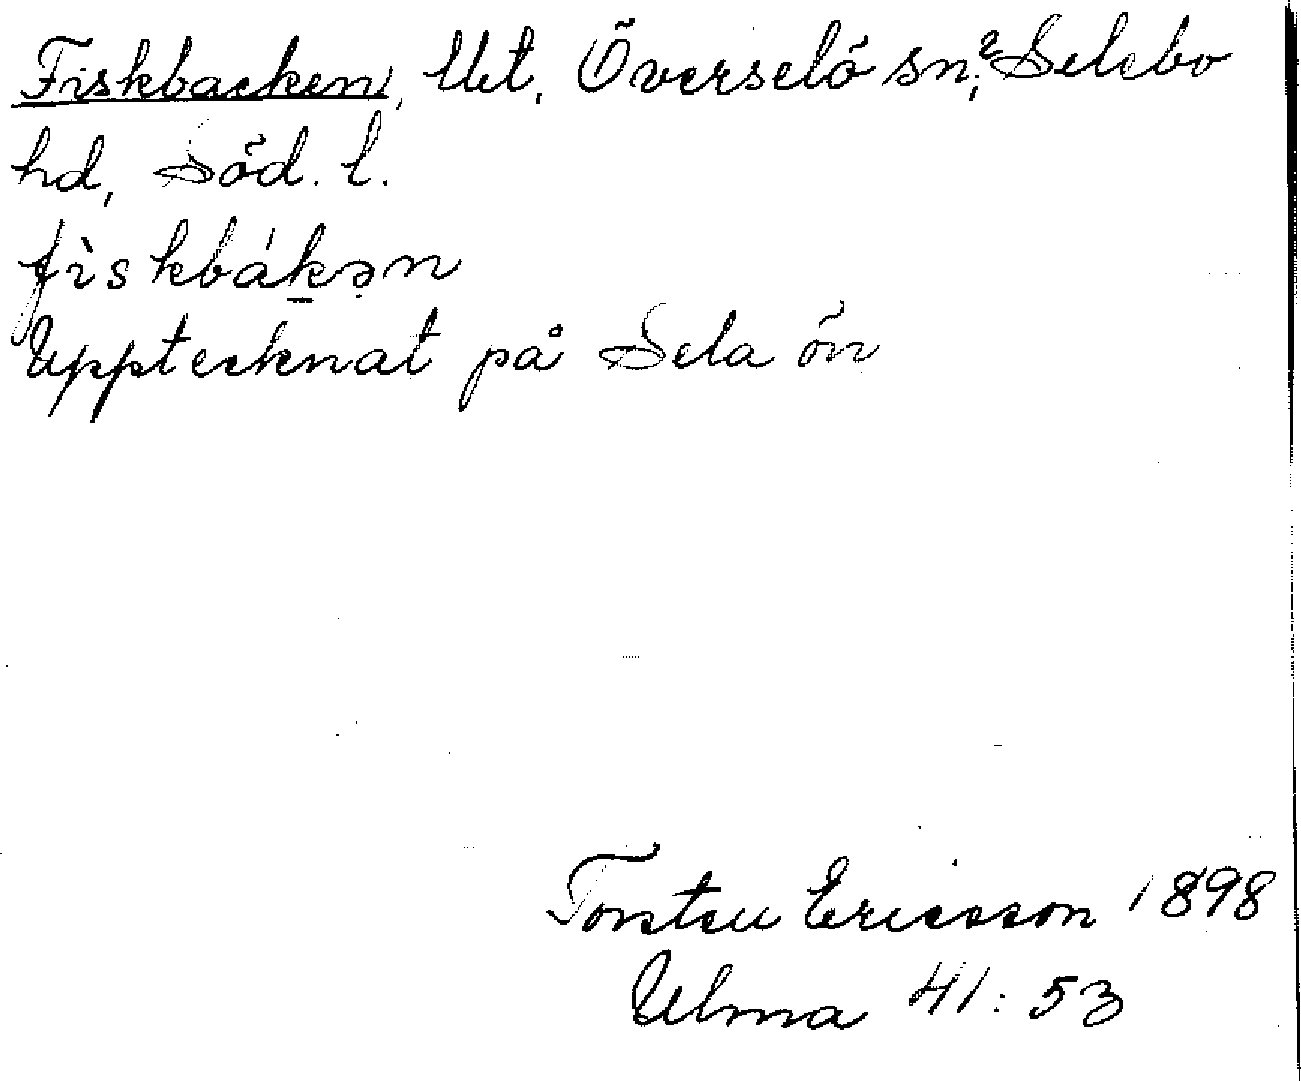 Fiskbacken, Ut. Överselö sn,? Selebo
hd, Söd. l.
fìskbákən
Upptecknat på Sela ön
Torsten Ericsson 1898
Ulma 41:53